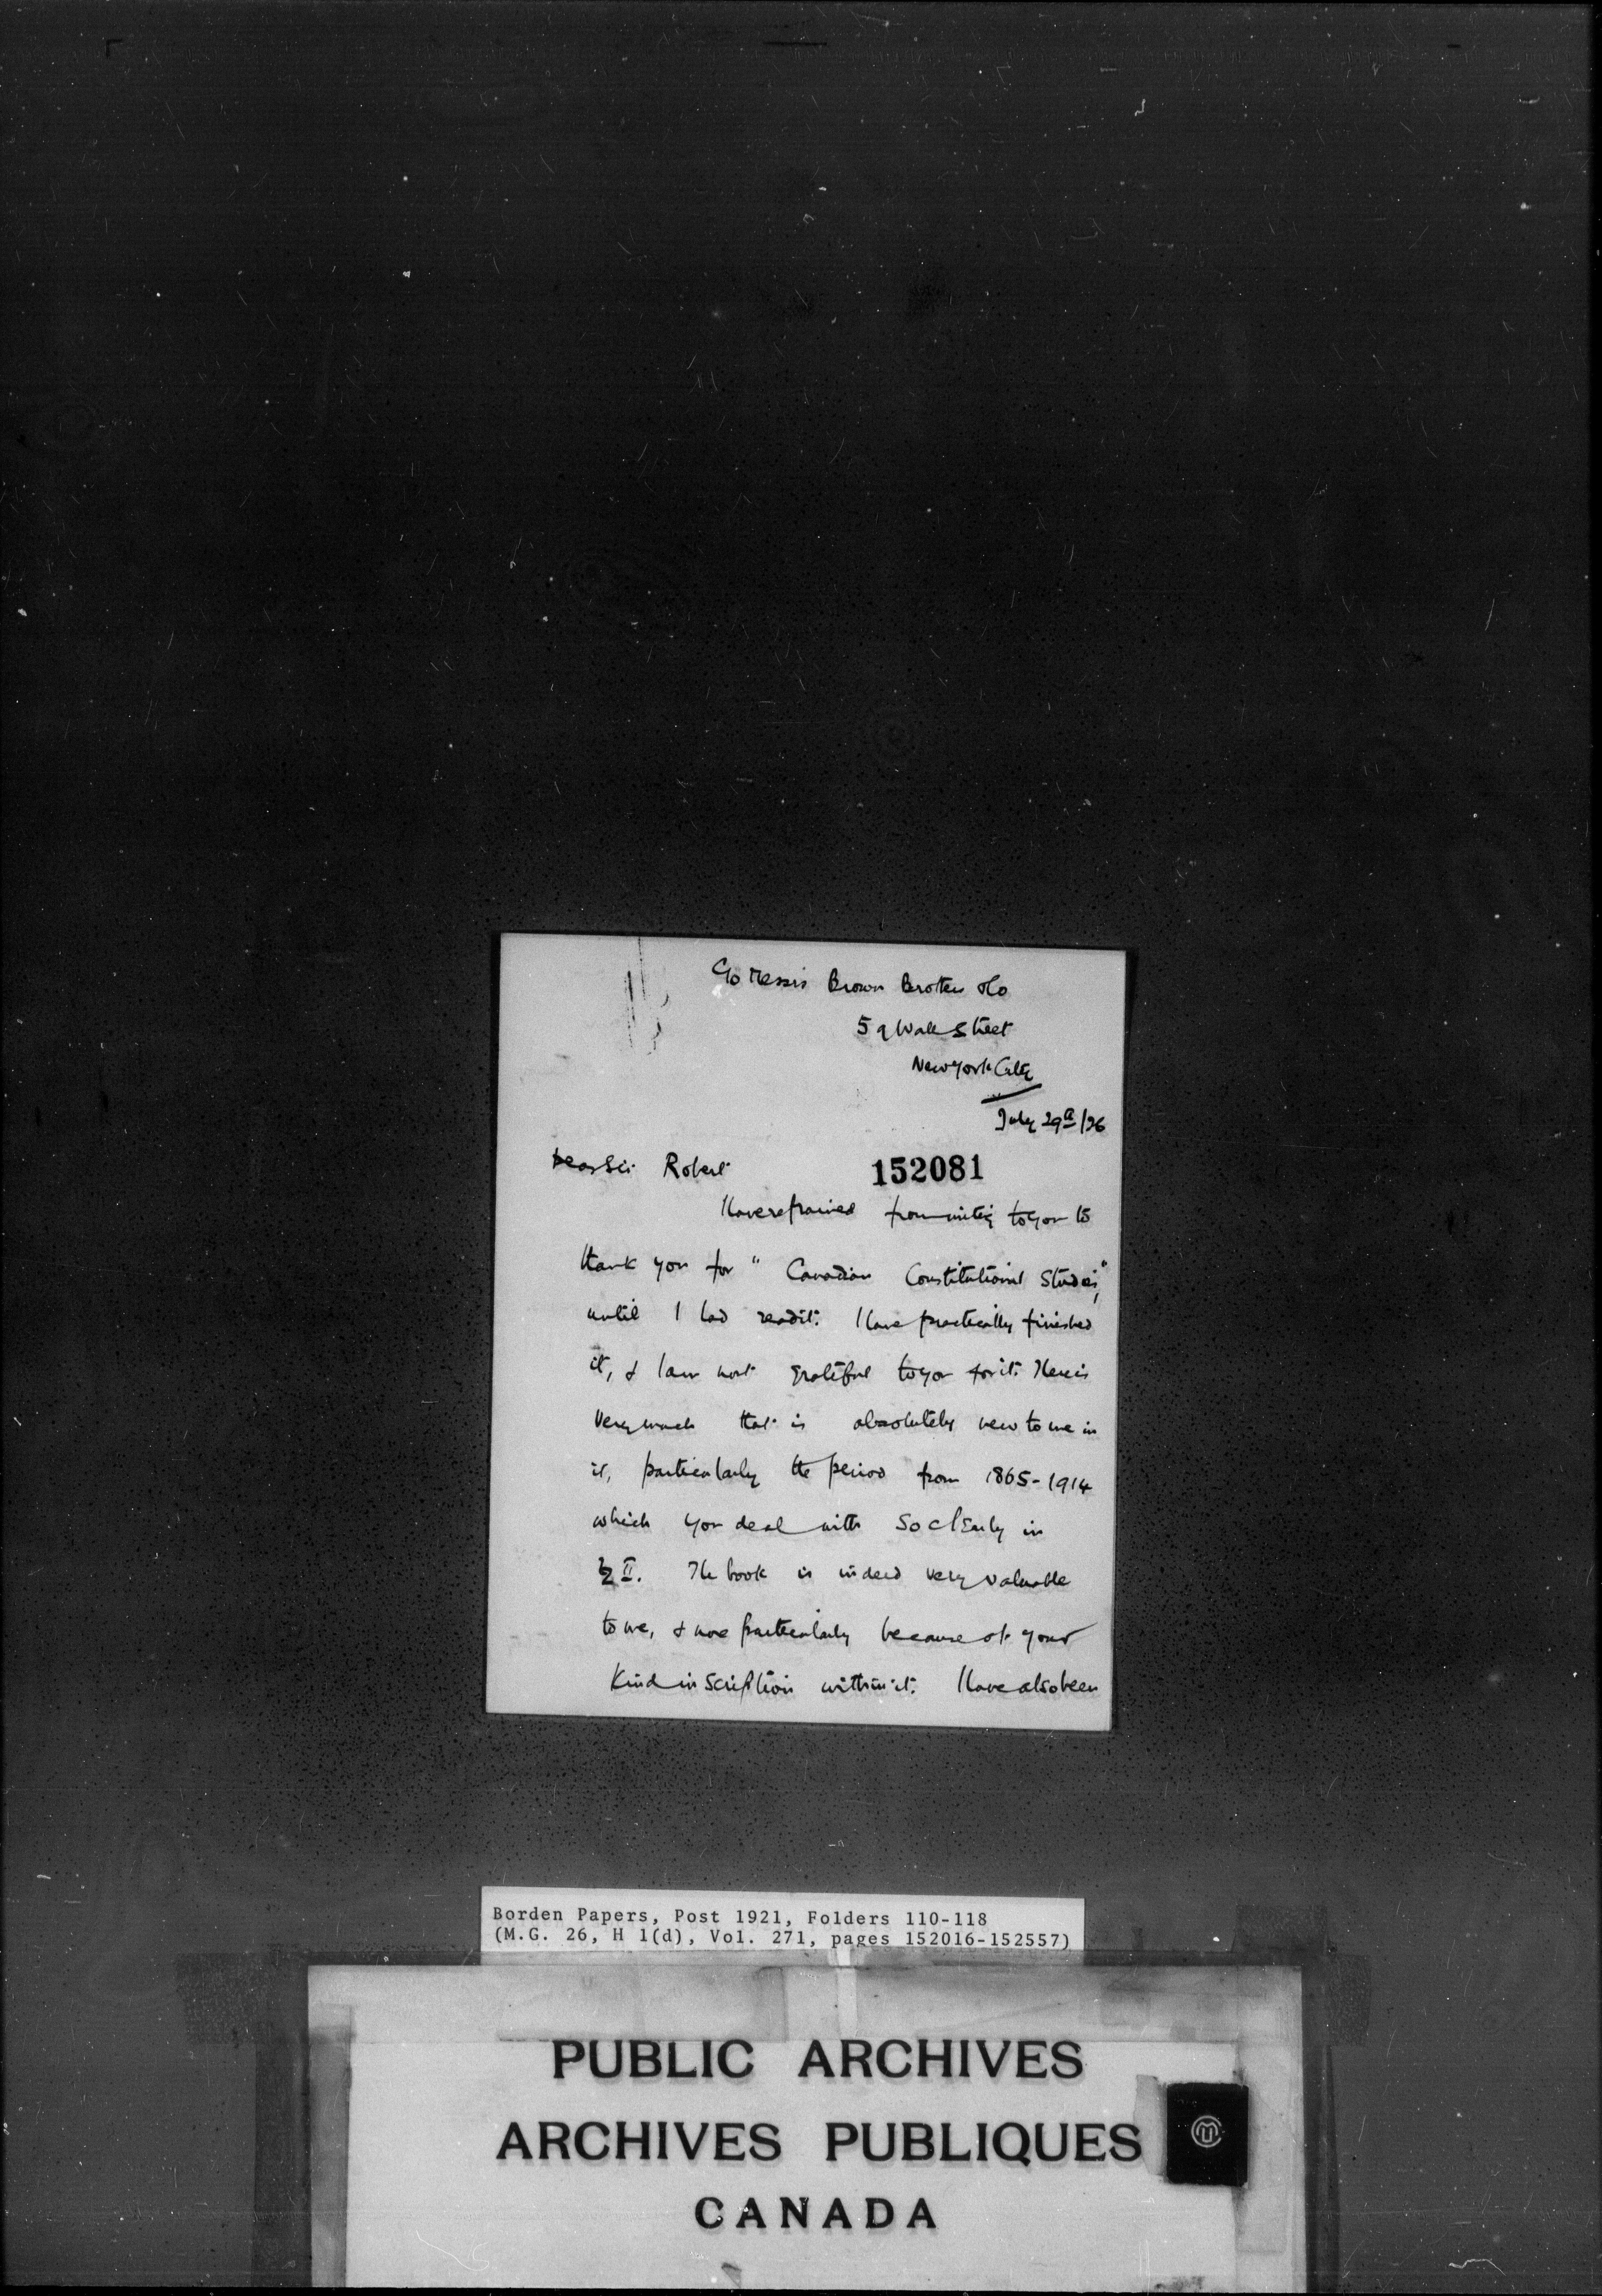 c/o Messrs Brown Brothers & Co
59 Wall Street
New York City
July 29th/26
Dear Sir Robert
152081
I have refrained from writing to you to
thank you for "Canadian Constitutional Studies,"
until I had read it. I have practically finished
it, & I am most grateful to you for it. There is
very much that is absolutely new to me in
it, particularly the period from 1865-1914
which you deal with so clearly in
II. The book is indeed very valuable
to me, & more particularly because of your
kind inscription within it. I have also been
Borden Papers, Post 1921, Folders 110-118
(M.G. 26, H 1(d), Vol. 271, pages 152016-152557)
PUBLIC ARCHIVES
ARCHIVES PUBLIQUES
CANADA